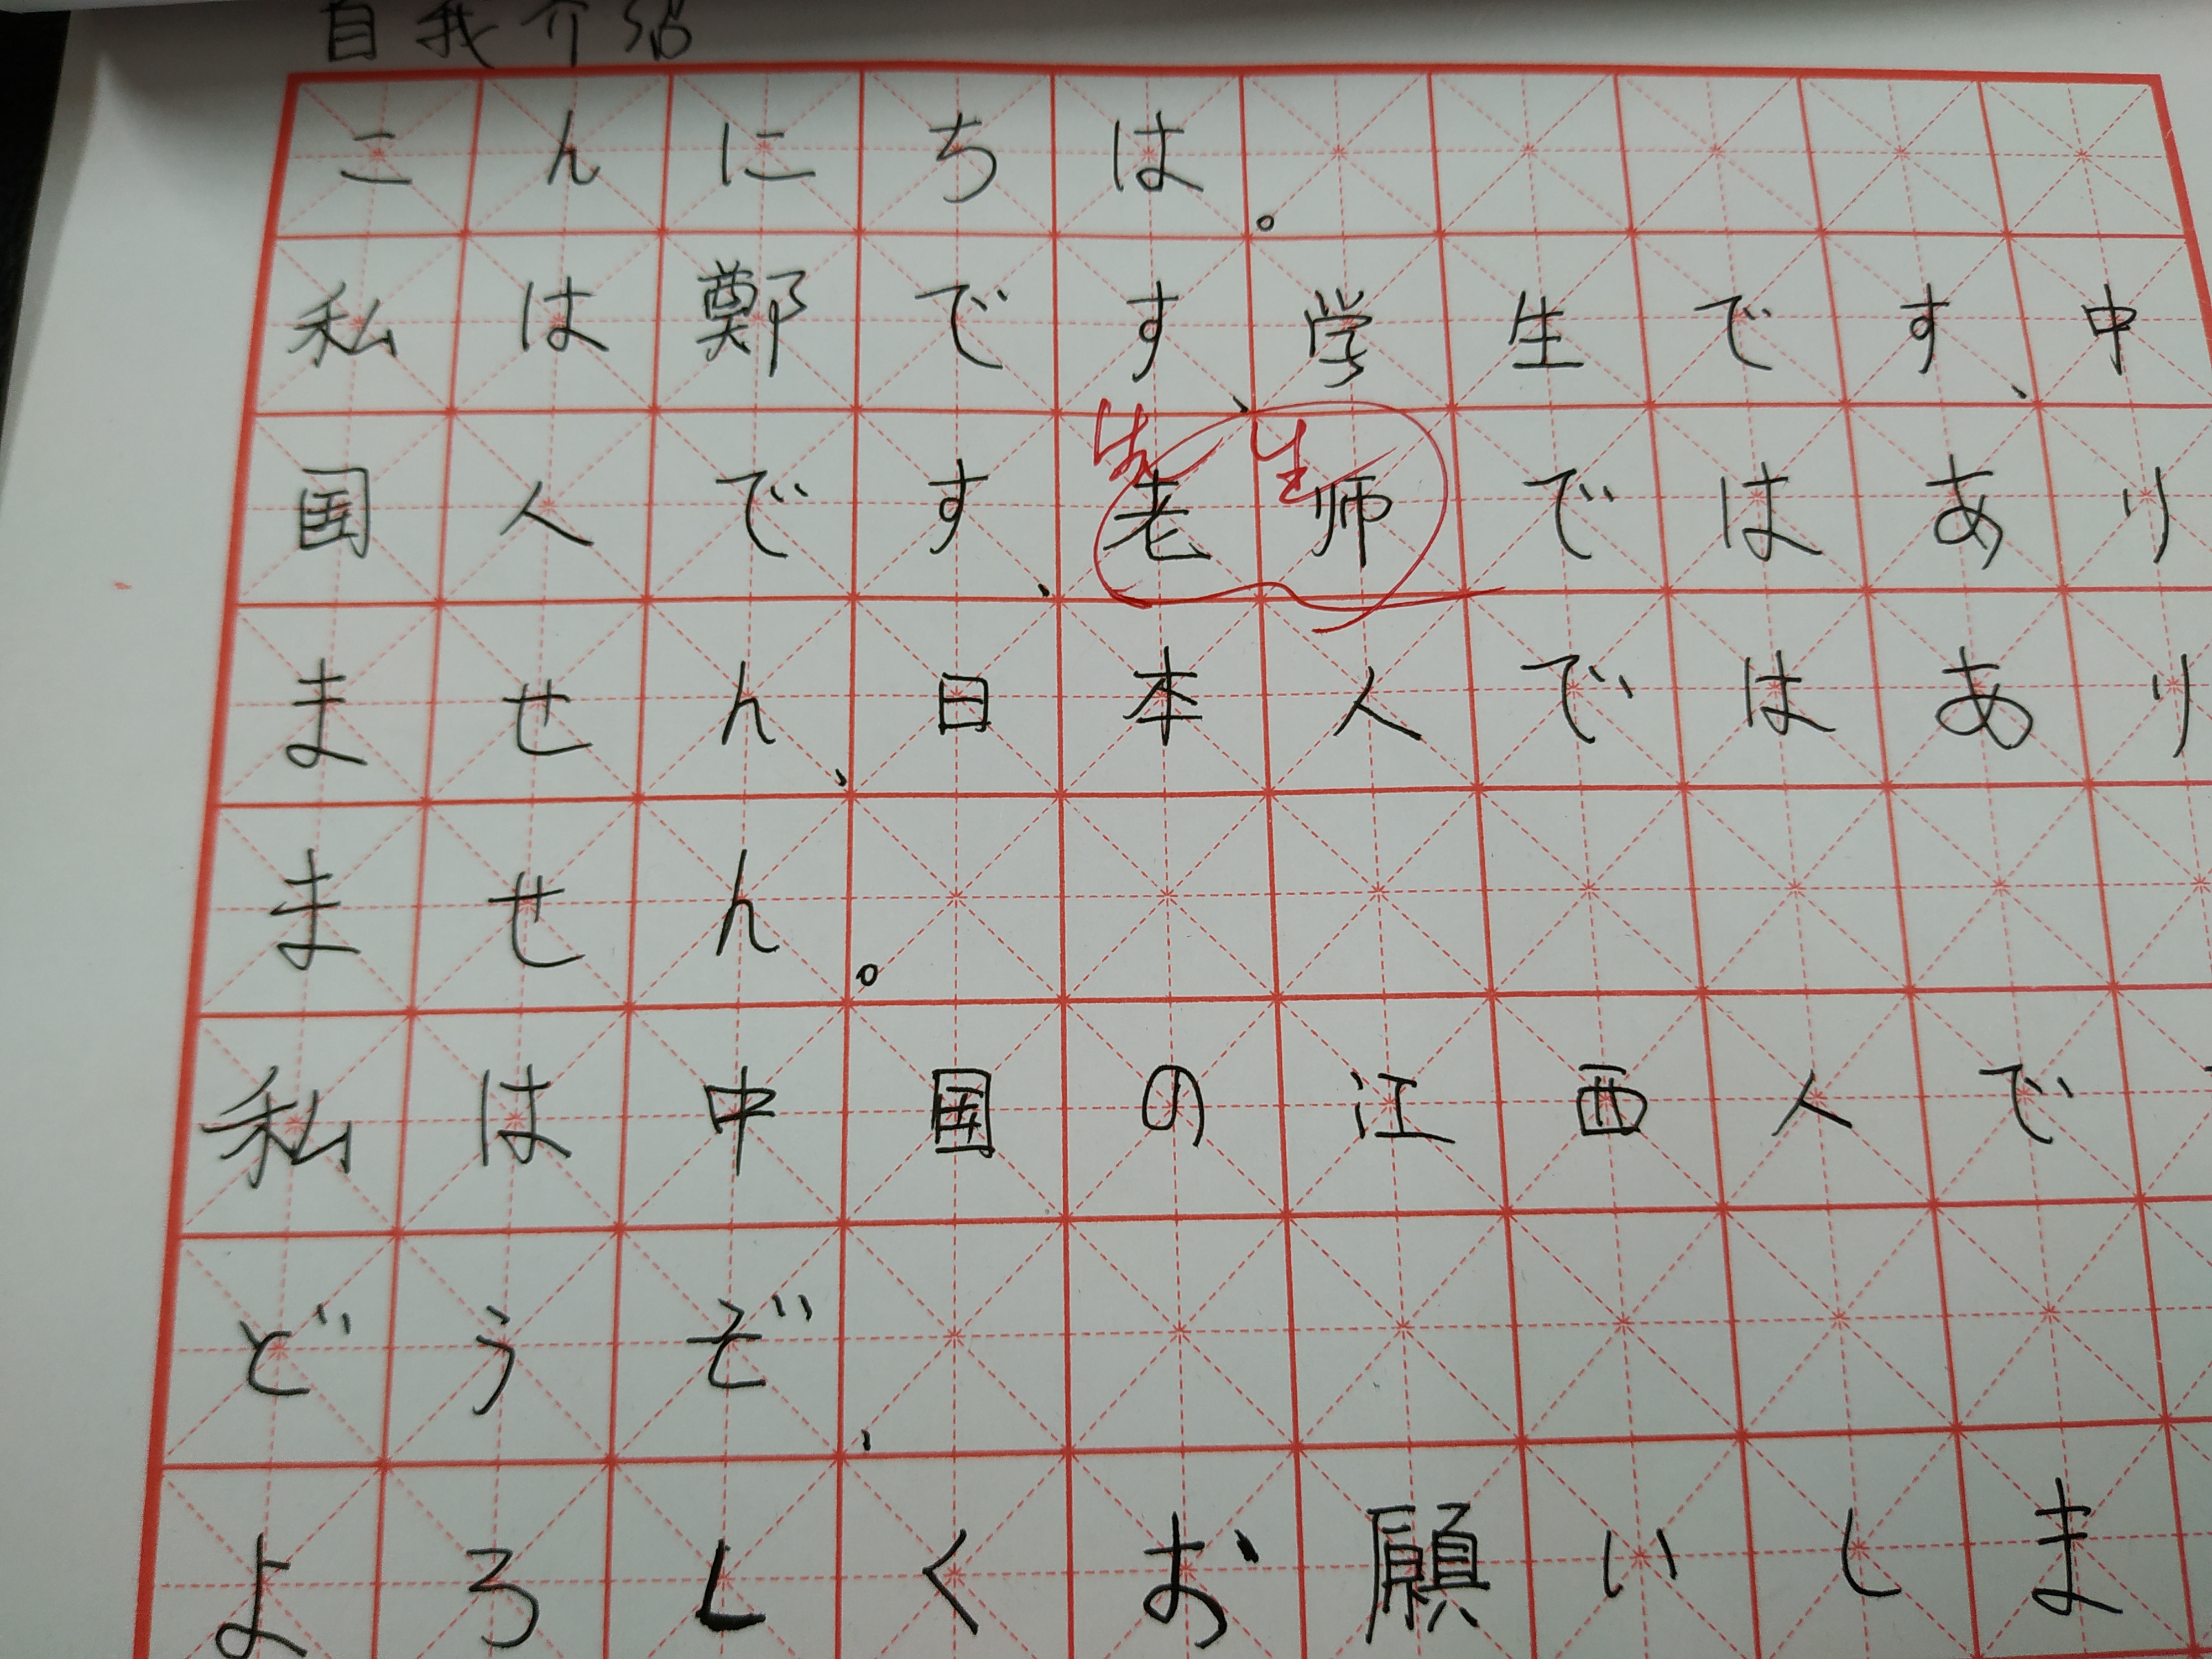 自我介绍
こんにちは。
私は鄭です、学生です、中
先生
国人です、老师ではあり
ません、日本人ではあり
ません。
私は中国の江西人で
どうぞ、
よろしくお願いしま